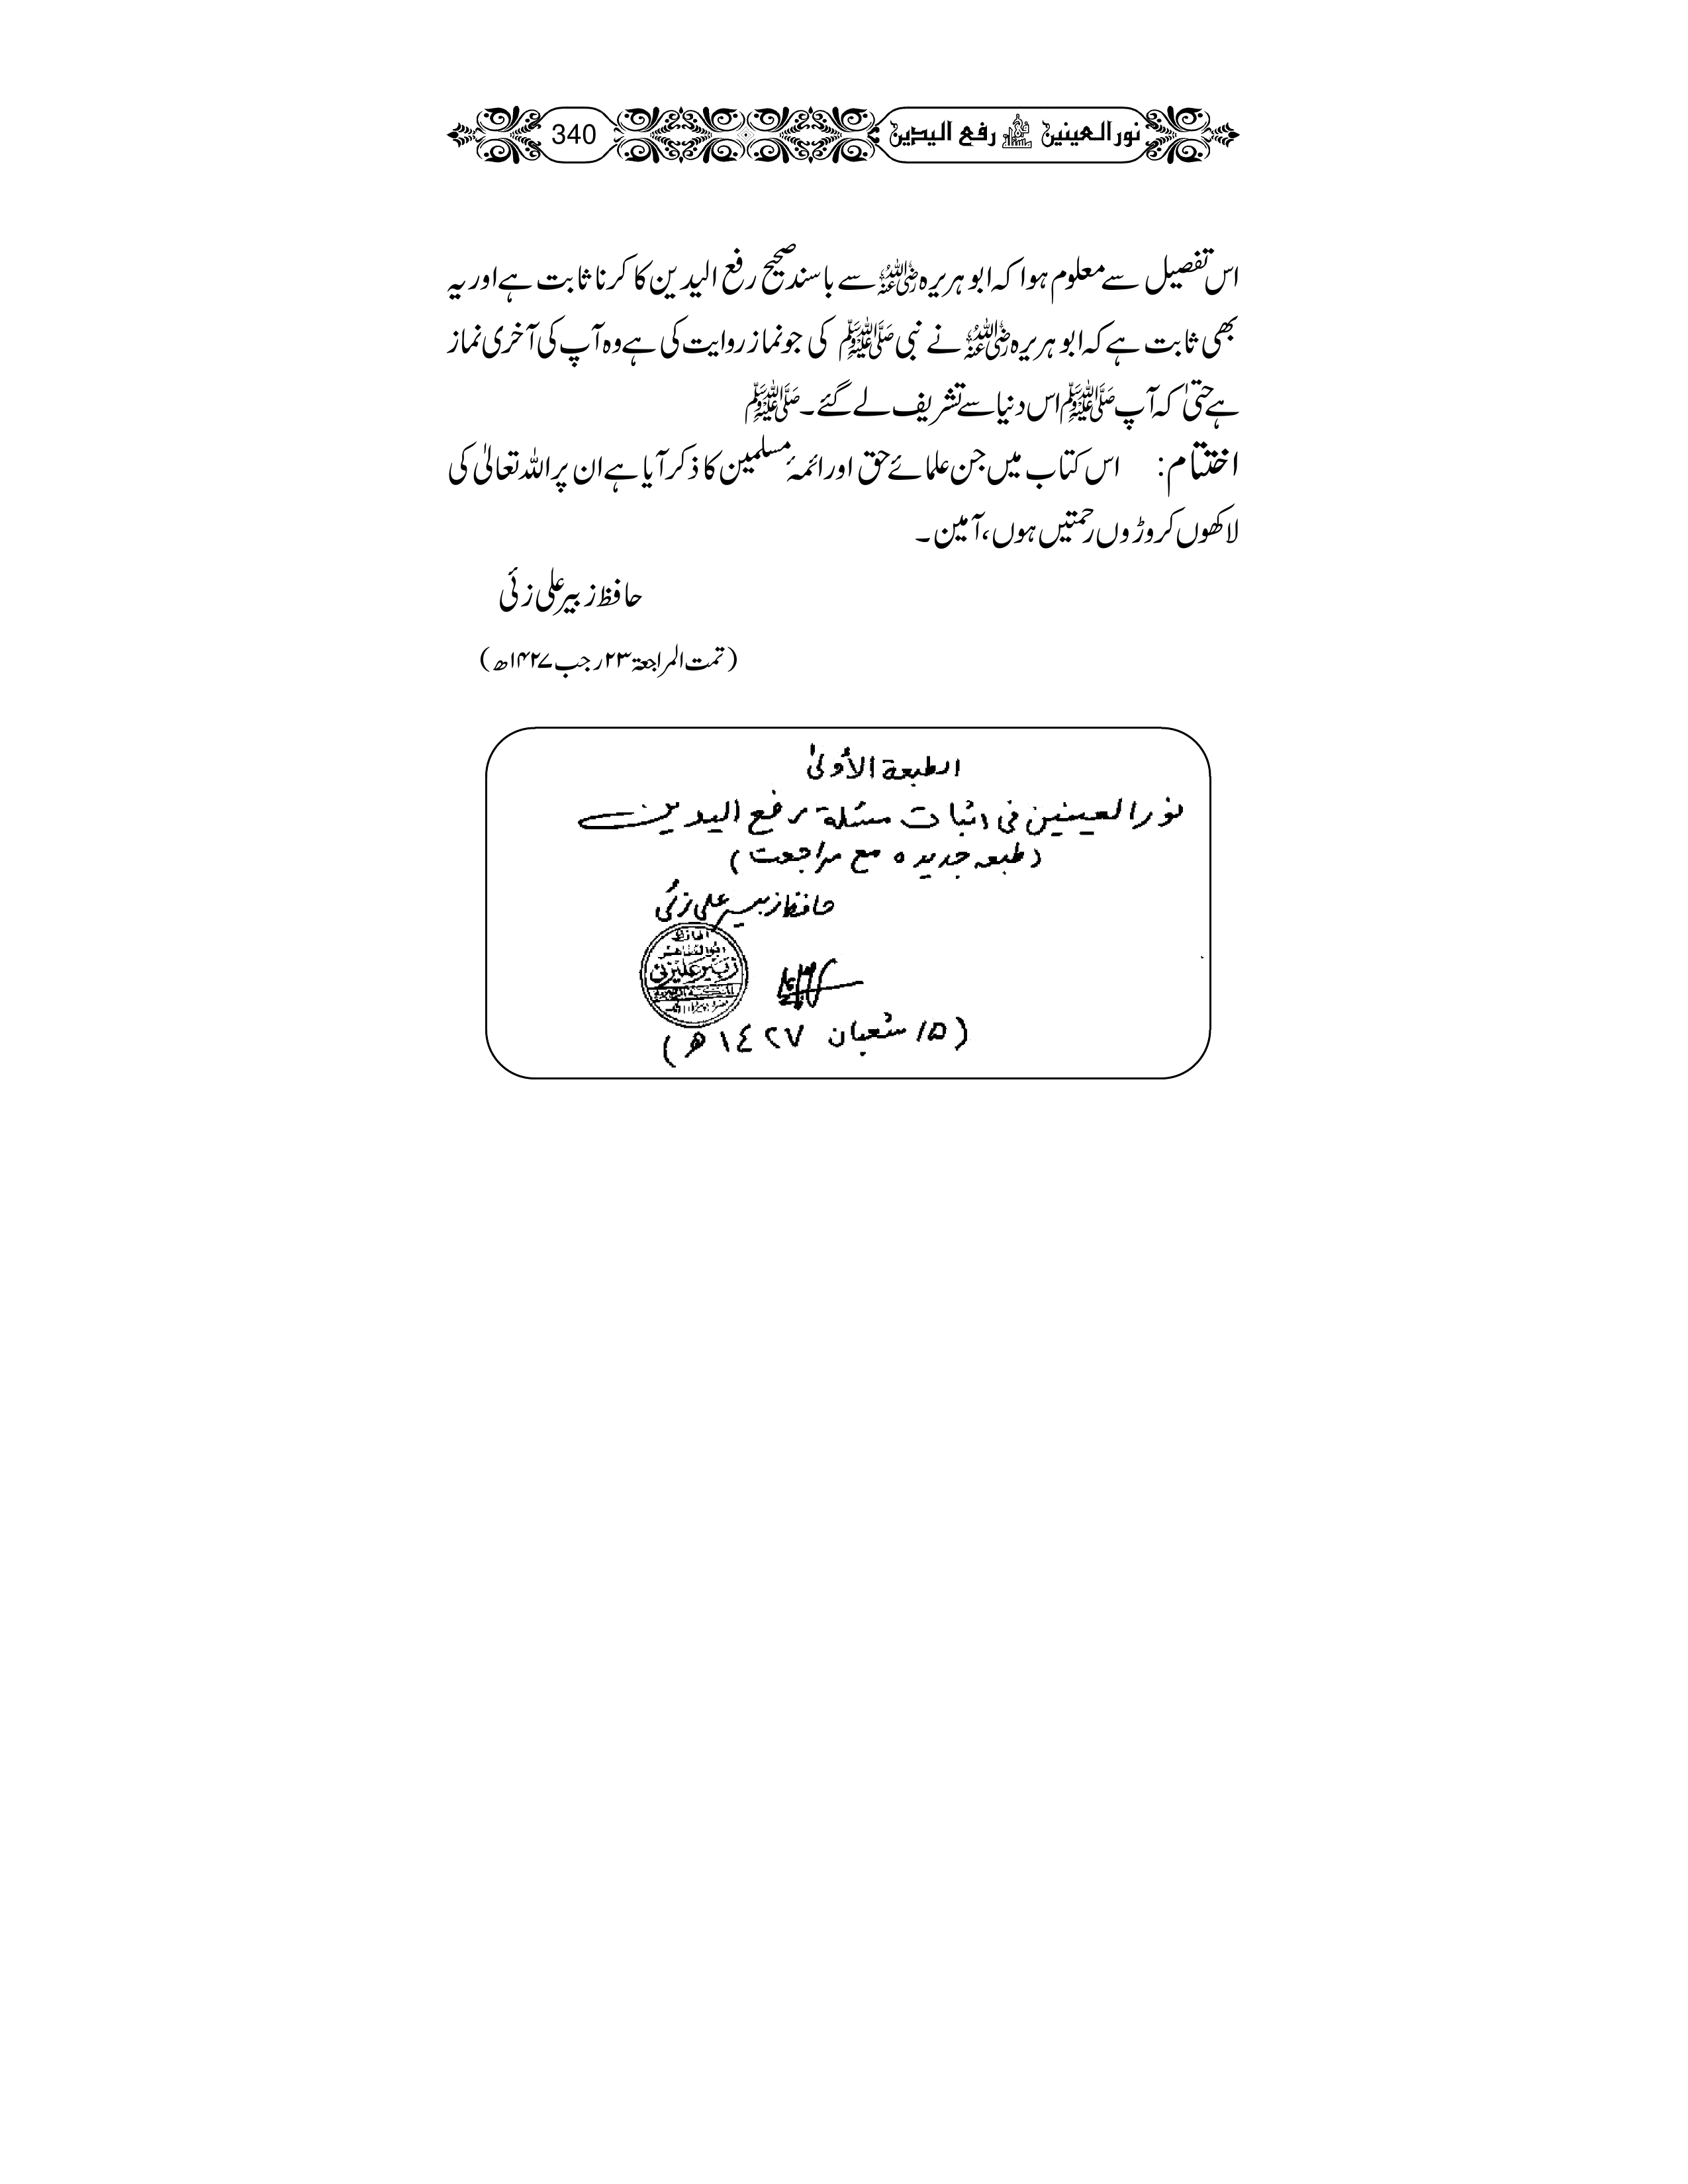 نور العینین فی مسئلہ رفع الیدین 340
اس تفصیل سے معلوم ہوا کہ ابو ہریرہ رضی اللہ عنہ سے باسند صحیح رفع الیدین کا کرنا ثابت ہے اور یہ
بھی ثابت ہے کہ ابو ہریرہ رضی اللہ عنہ نے نبی ﷺ کی جو نماز روایت کی ہے وہ آپ کی آخری نماز
ہے حتیٰ کہ آپ ﷺ اس دنیا سے تشریف لے گئے۔ ﷺ
اختتام: اس کتاب میں جن علمائے حق اور ائمۂ مسلمین کا ذکر آیا ہے ان پر اللہ تعالیٰ کی
لاکھوں کروڑوں رحمتیں ہوں، آمین۔
حافظ زبیر علی زئی
(تمت المراجعۃ ۲۳/رجب ۱۴۲۷ھ)
الطبعة الأولیٰ
نور العینین فی اثبات مسئلة رفع الیدین
(طبعہ جدیدہ مع مراجعت)
حافظ زبیر علی زئی
زبیر علیزئی
(۱۵/ شعبان ١٤٢٧ھ)